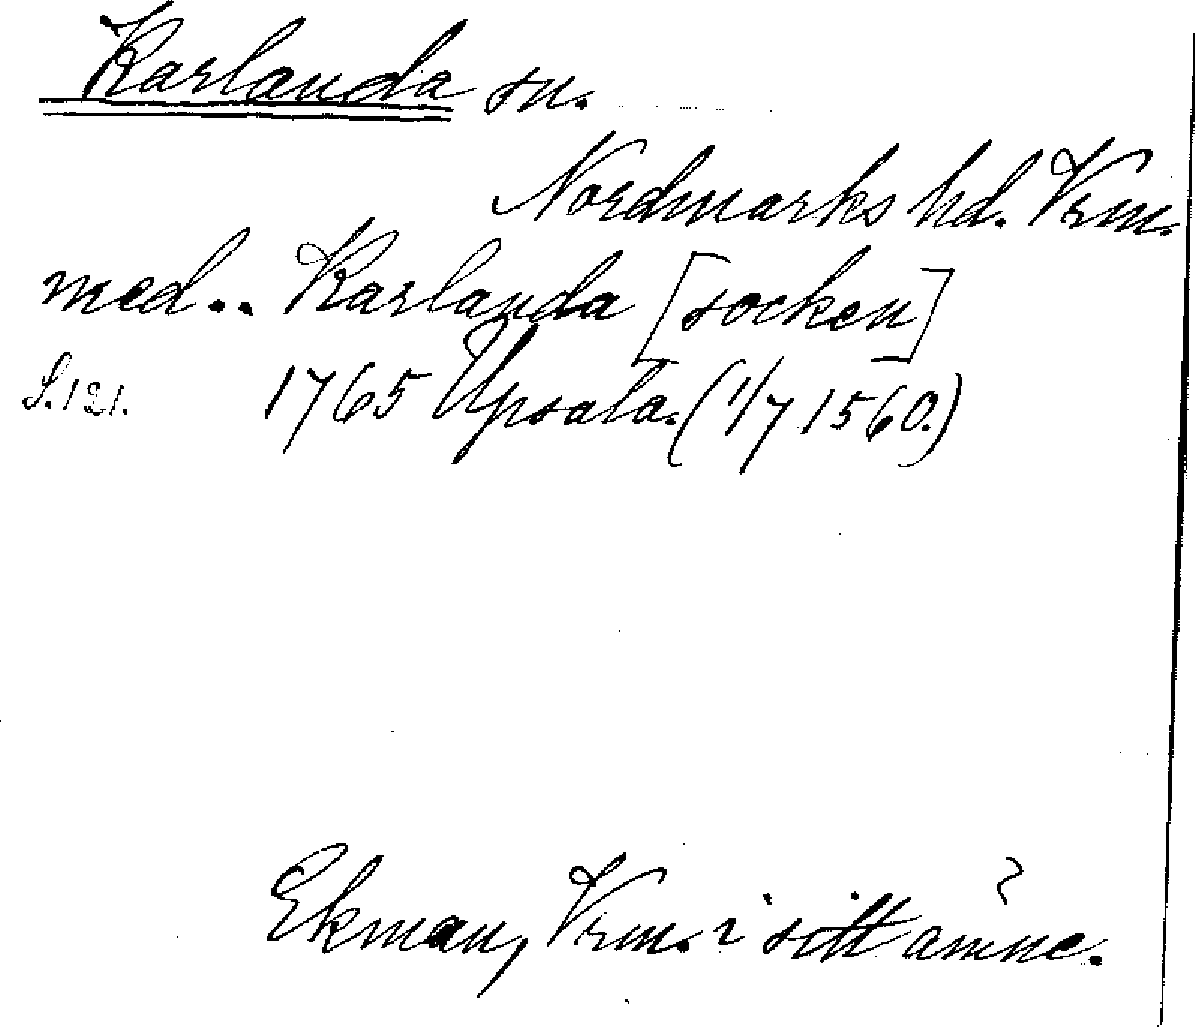 Karlanda sn.
Nordmarks hd. Vrm.
med.. Karlanda [socken]
S.121. 1765 Upsala. (1/7 1560.)
Ekman, Vrm. i sitt ämne.